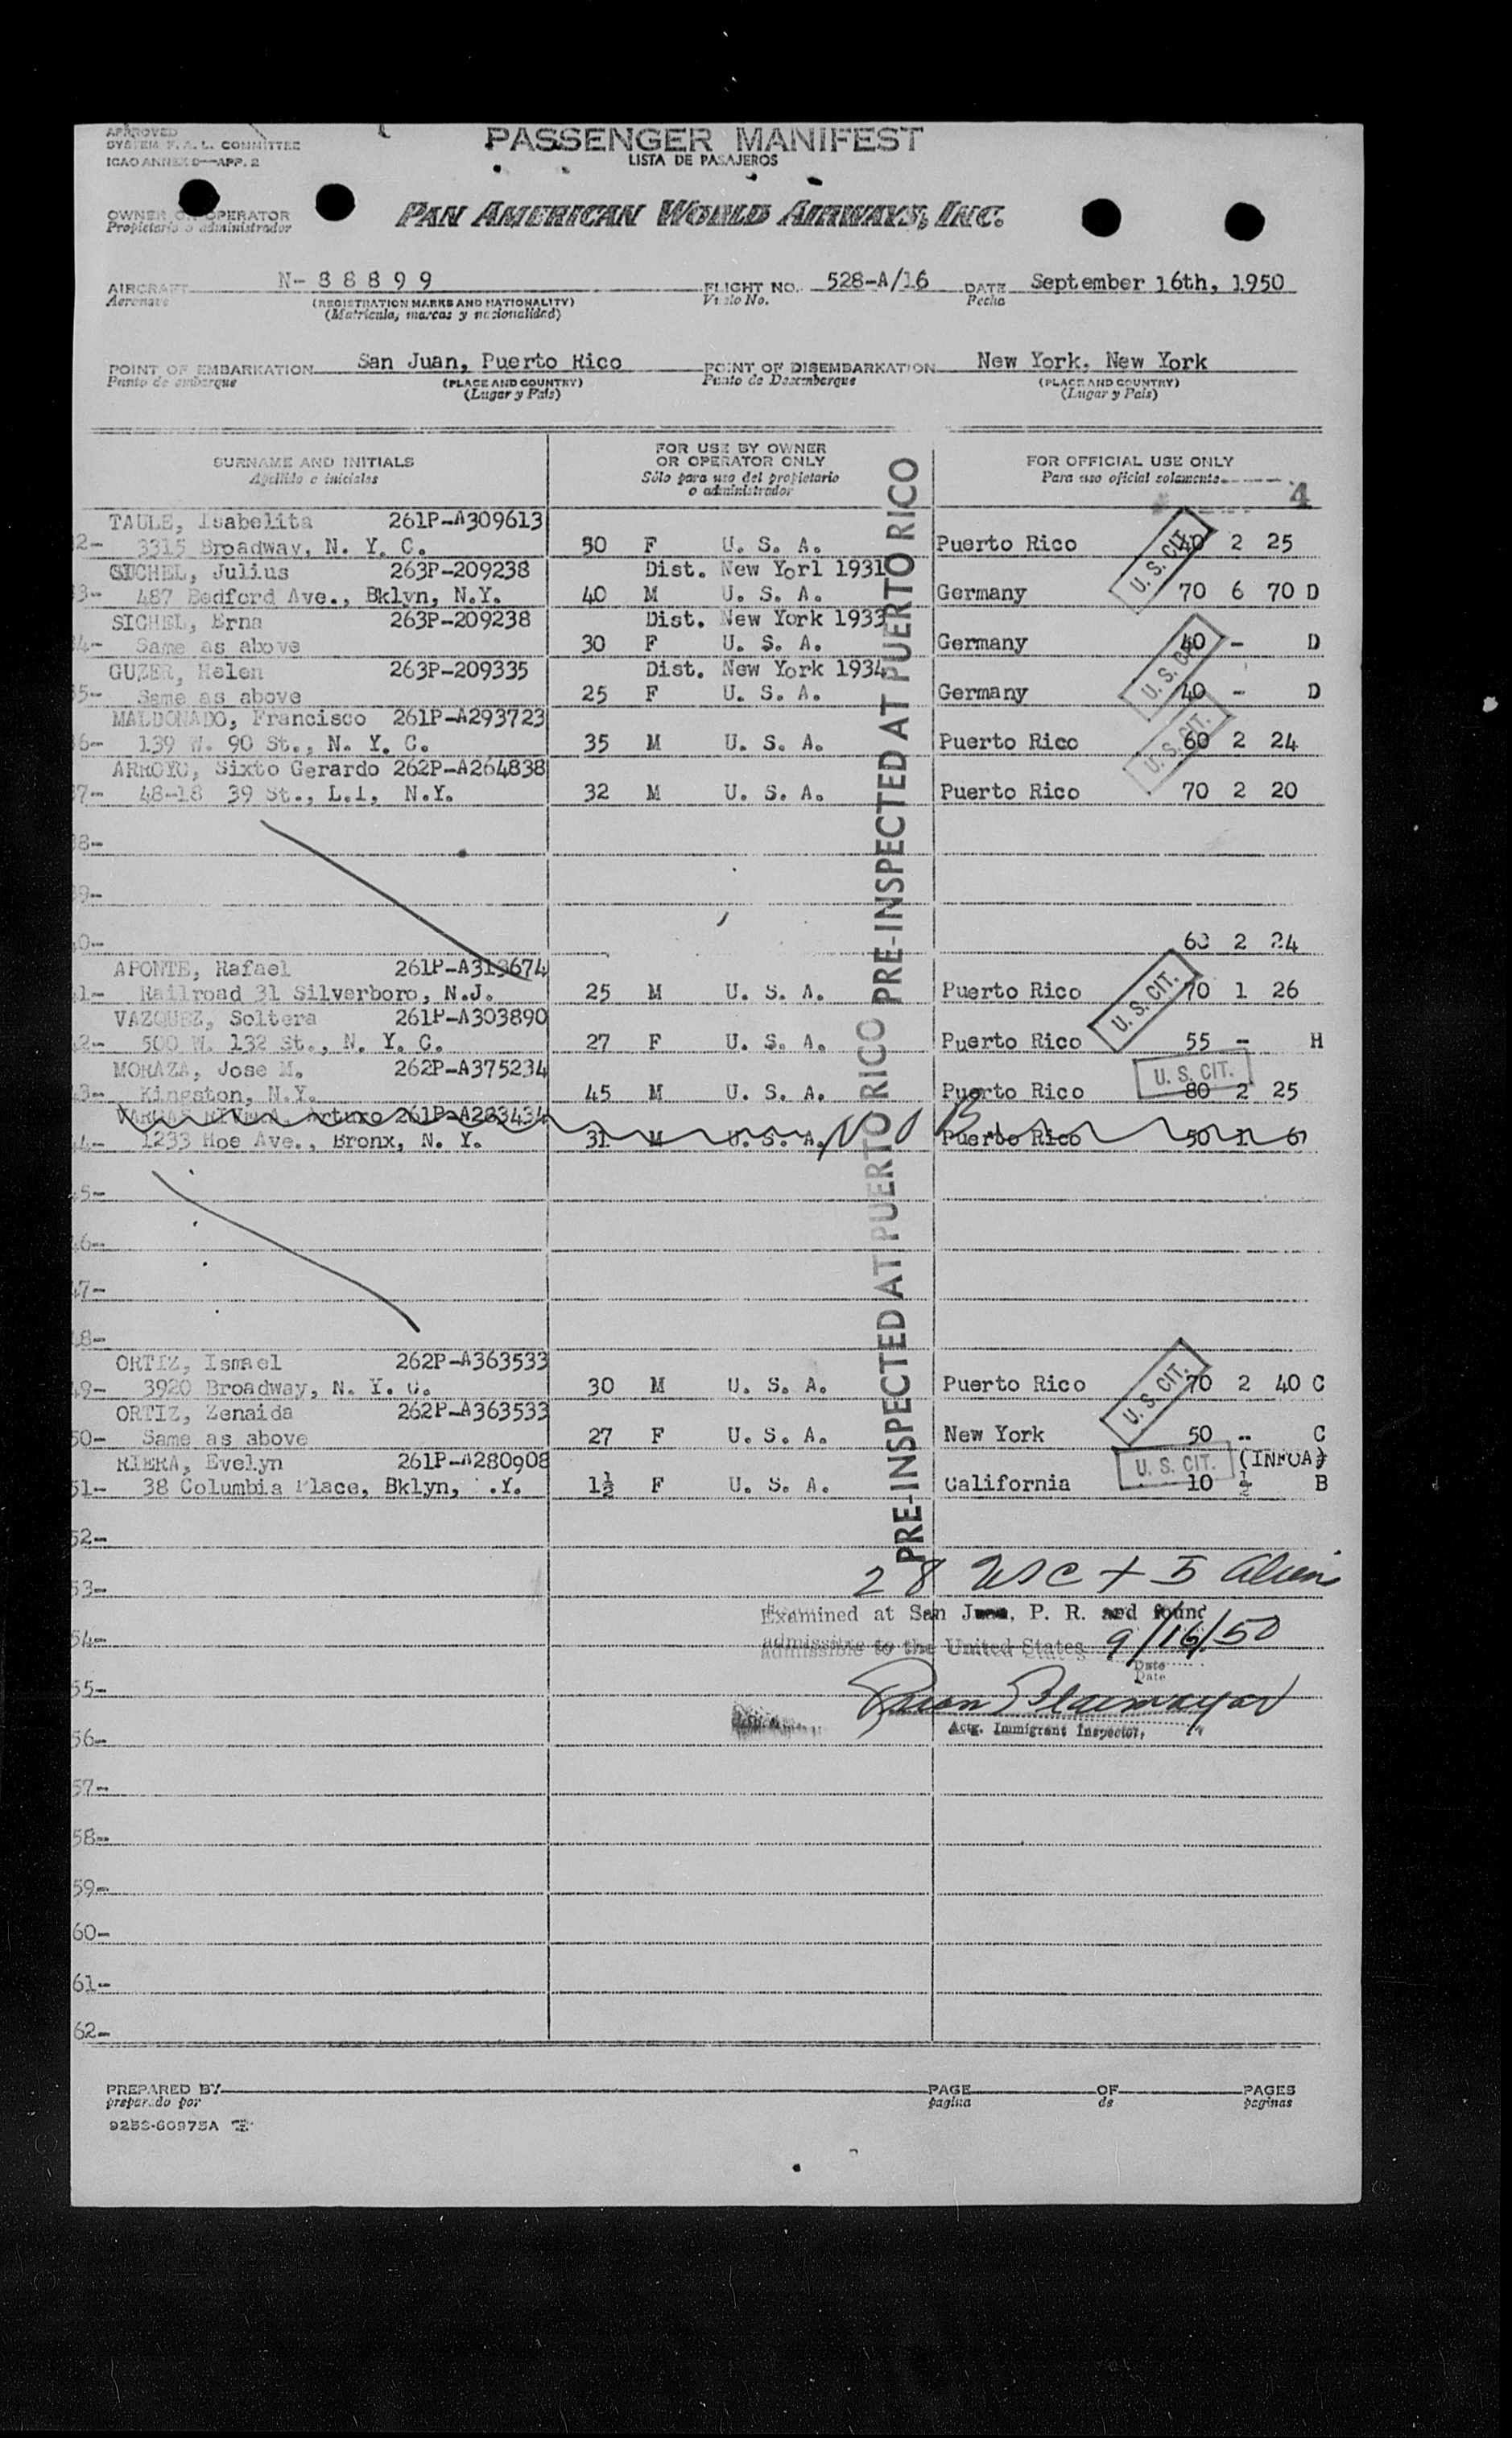 APPROVED
SYSTEM F. A. L. COMMITTEE
ICAO ANNEX 9—APP. 2
PASSENGER MANIFEST
LISTA DE PASAJEROS
OWNER OR OPERATOR
Propietario o administrador
PAN AMERICAN WORLD AIRWAYS, INC.
AIRCRAFT N- 8 8 8 9 9 FLIGHT NO. 528-A/16 DATE September 16th, 1950
Aeronave (REGISTRATION MARKS AND NATIONALITY) Vuelo No. Fecha
(Matricula, marcas y nacionalidad)
POINT OF EMBARKATION San Juan, Puerto Rico POINT OF DISEMBARKATION New York, New York
Punto de embarque (PLACE AND COUNTRY) Punto de Desembarque (PLACE AND COUNTRY)
(Lugar y País) (Lugar y País)
SURNAME AND INITIALS
Apellido e iniciales
FOR USE BY OWNER
OR OPERATOR ONLY
Sólo para uso del propietario
o administrador
FOR OFFICIAL USE ONLY
Para uso oficial solamente
4
TAULE, Isabelita 261P-A309613
2- 3315 Broadway, N. Y. C. 50 F U. S. A. Puerto Rico 40 2 25
SICHEL, Julius 263P-209238 Dist. New Yorl 1931
3- 487 Bedford Ave., Bklyn, N.Y. 40 M U. S. A. Germany 70 6 70 D
SICHEL, Erna 263P-209238 Dist. New York 1933
4- Same as above 30 F U. S. A. Germany 40 - D
GUZER, Helen 263P-209335 Dist. New York 1934
5- Same as above 25 F U. S. A. Germany 40 - D
MALDONADO, Francisco 261P-A293723
6- 139 W. 90 St., N. Y. C. 35 M U. S. A. Puerto Rico 60 2 24
ARROYO, Sixto Gerardo 262P-A264838
7- 48-18 39 St., L.I, N.Y. 32 M U. S. A. Puerto Rico 70 2 20
8-
9-
0- 60 2 24
APONTE, Rafael 261P-A313674
1- Railroad 31 Silverboro, N.J. 25 M U. S. A. Puerto Rico 70 1 26
VAZQUEZ, Soltera 261P-A303890
2- 500 W. 132 St., N. Y. C. 27 F U. S. A. Puerto Rico 55 - H
MORAZA, Jose M. 262P-A375234
3- Kingston, N.Y. 45 M U. S. A. Puerto Rico 80 2 25
VARGAS RIVERA, Arturo 261P-A283434
4- 1233 Hoe Ave., Bronx, N. Y. 31 M U. S. A. N O B Puerto Rico 50 1 6
5-
46-
47-
8-
ORTIZ, Ismael 262P-A363533
49- 3920 Broadway, N. Y. C. 30 M U. S. A. Puerto Rico 70 2 40 C
ORTIZ, Zenaida 262P-A363533
50- Same as above 27 F U. S. A. New York 50 - C
RIERA, Evelyn 261P-A280908 (INFOA)
51- 38 Columbia Place, Bklyn, .Y. 1½ F U. S. A. California 10 ½ B
U. S. CIT.
U. S. CIT.
U. S. CIT.
U. S. CIT.
U. S. CIT.
U. S. CIT.
U. S. CIT.
PRE-INSPECTED AT PUERTO RICO
PRE-INSPECTED AT PUERTO RICO
52-
53- 28 USC + 5 aliens
Examined at San Juan, P. R. and found
54- admissible to the United States 9/16/50
Date
Date
55-
Actg. Immigrant Inspector,
56-
57-
58-
59-
60-
61-
62-
PREPARED BY PAGE OF PAGES
preparado por pagina de paginas
9253-60975A